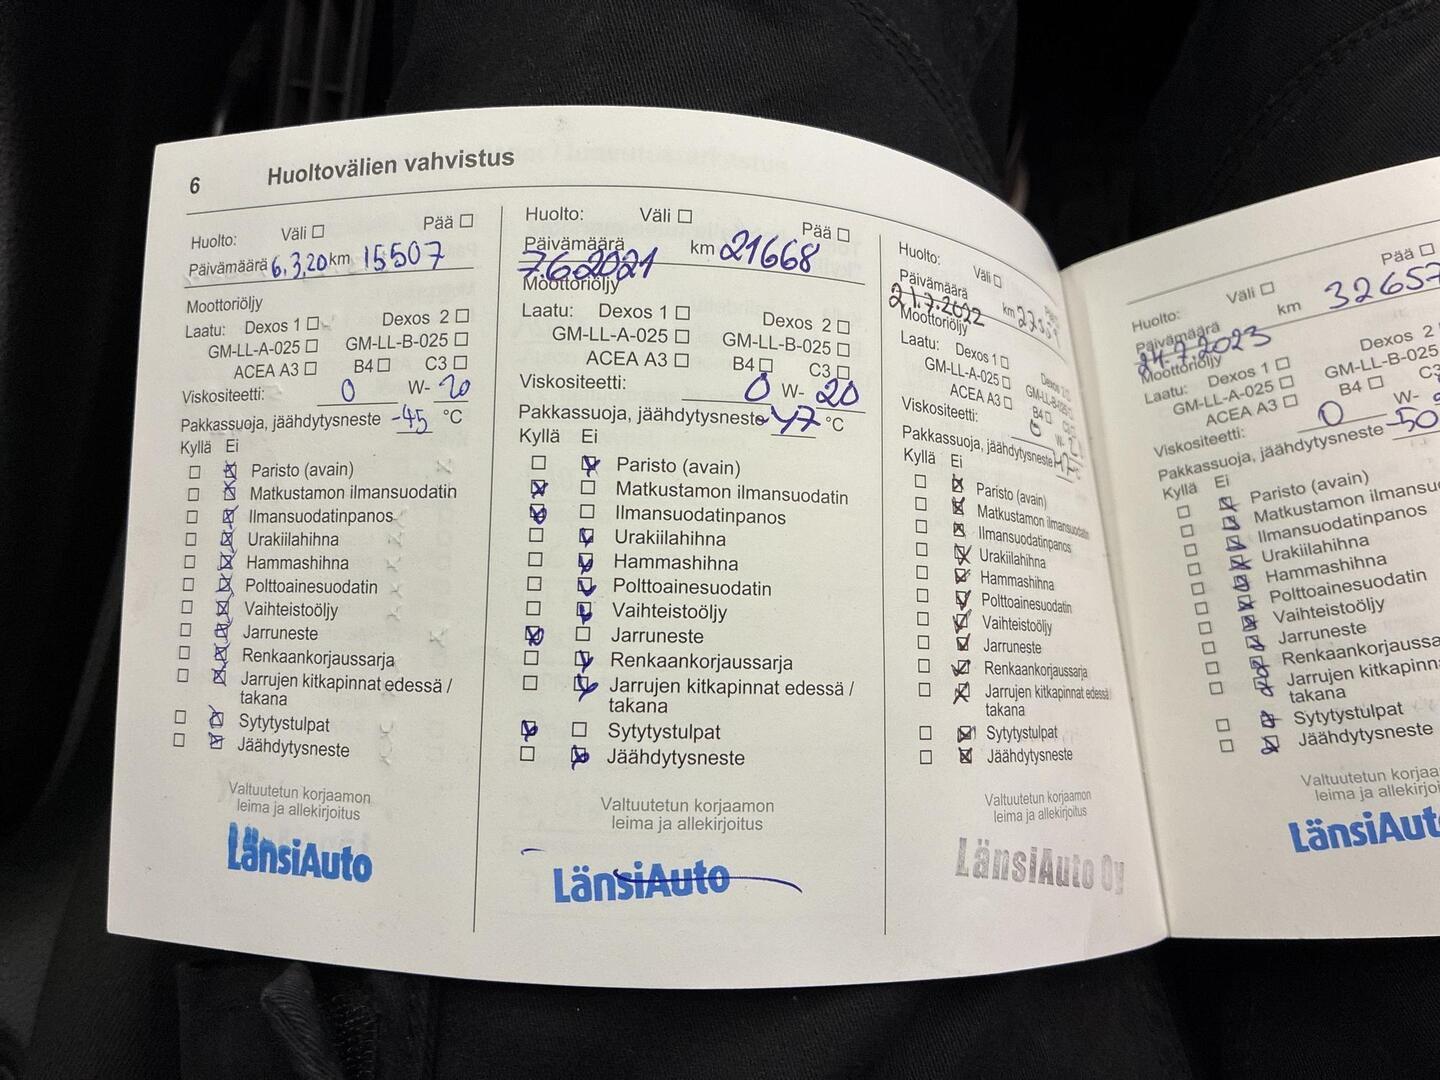 6 Huoltovälien vahvistus
Huolto: Väli Pää
Päivämäärä 6.3.20 km 15507
Moottoriöljy
Laatu: Dexos 1 Dexos 2
GM-LL-A-025 GM-LL-B-025
ACEA A3 B4 C3
Viskositeetti: 0 W- 20
Pakkassuoja, jäähdytysneste -45 °C
Kyllä Ei
Paristo (avain)
Matkustamon ilmansuodatin
Ilmansuodatinpanos
Urakiilahihna
Hammashihna
Polttoainesuodatin
Vaihteistoöljy
Jarruneste
Renkaankorjaussarja
Jarrujen kitkapinnat edessä /
takana
Sytytystulpat
Jäähdytysneste
Valtuutetun korjaamon
leima ja allekirjoitus
LänsiAuto
Huolto: Väli Pää
Päivämäärä km 21668
7.6.2021
Moottoriöljy
Laatu: Dexos 1 Dexos 2
GM-LL-A-025 GM-LL-B-025
ACEA A3 B4 C3
Viskositeetti: 0 W- 20
Pakkassuoja, jäähdytysneste -47 °C
Kyllä Ei
Paristo (avain)
Matkustamon ilmansuodatin
Ilmansuodatinpanos
Urakiilahihna
Hammashihna
Polttoainesuodatin
Vaihteistoöljy
Jarruneste
Renkaankorjaussarja
Jarrujen kitkapinnat edessä /
takana
Sytytystulpat
Jäähdytysneste
Valtuutetun korjaamon
leima ja allekirjoitus
LänsiAuto
Huolto: Väli
Päivämäärä km
21.7.2022
Moottoriöljy
Laatu: Dexos 1 Dexos
GM-LL-A-025 GM-LL-B-025
ACEA A3 B4
Viskositeetti: 0 W-
Pakkassuoja, jäähdytysneste
Kyllä Ei
Paristo (avain)
Matkustamon ilmansuodatin
Ilmansuodatinpanos
Urakiilahihna
Hammashihna
Polttoainesuodatin
Vaihteistoöljy
Jarruneste
Renkaankorjaussarja
Jarrujen kitkapinnat edessä
takana
Sytytystulpat
Jäähdytysneste
Valtuutetun korjaamon
leima ja allekirjoitus
LänsiAuto Oy
Huolto: Väli Pää
Päivämäärä km 32657
24.7.2023
Moottoriöljy
Laatu: Dexos 1 Dexos 2
GM-LL-A-025 GM-LL-B-025
ACEA A3 B4
Viskositeetti: 0 W-
Pakkassuoja, jäähdytysneste -50
Kyllä Ei
Paristo (avain)
Matkustamon ilmansuo
Ilmansuodatinpanos
Urakiilahihna
Hammashihna
Polttoainesuodatin
Vaihteistoöljy
Jarruneste
Renkaankorjaussa
Jarrujen kitkapinn
takana
Sytytystulpat
Jäähdytysneste
Valtuutetun korjaa
leima ja allekirjoi
LänsiAut